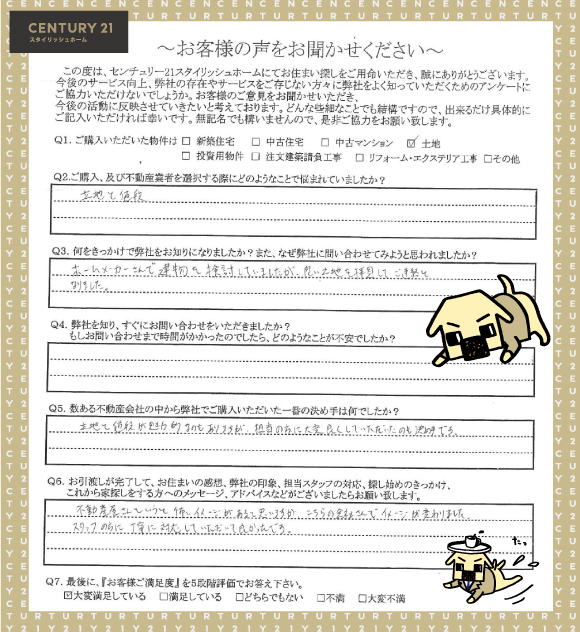 CENTURY 21
スタイリッシュホーム
～お客様の声をお聞かせください～
この度は、センチュリー21スタイリッシュホームにてお住まい探しをご用命いただき、誠にありがとうございます。
今後のサービス向上、弊社の存在やサービスをご存じない方々に弊社をよく知っていただくためのアンケートに
ご協力いただけないでしょうか。お客様のご意見をお聞かせいただき、
今後の活動に反映させていきたいと考えております。どんな些細なことでも結構ですので、出来るだけ具体的に
ご記入いただければ幸いです。無記名でも構いませんので、是非ご協力をお願い致します。
Q1. ご購入いただいた物件は □ 新築住宅 □ 中古住宅 □ 中古マンション ☑ 土地
□ 投資用物件 □ 注文建築請負工事 □ リフォーム・エクステリア工事 □その他
Q2.ご購入、及び不動産業者を選択する際にどのようなことで悩まれていましたか？
土地と値段
Q3. 何をきっかけで弊社をお知りになりましたか？また、なぜ弊社に問い合わせてみようと思われましたか？
ホームメーカーさんで建物を検討していましたが、良い土地を拝見して ご連絡と
なりました。
Q4. 弊社を知り、すぐにお問い合わせをいただきましたか？
もしお問い合わせまで時間がかかったのでしたら、どのようなことが不安でしたか？
Q5. 数ある不動産会社の中から弊社でご購入いただいた一番の決め手は何でしたか？
土地と値段が魅力的なのもありますが、担当の方に大変良くしていただいたのも決め手です。
Q6. お引渡しが完了して、お住まいの感想、弊社の印象、担当スタッフの対応、探し始めのきっかけ、
これから家探しをする方へのメッセージ、アドバイスなどがございましたらお願い致します。
不動産屋さんというと怖いイメージがあると思いますが、こちらの会社さんでイメージが変わりました。
スタッフの方に丁寧に対応していただいて良かったです。
たっ
Q7. 最後に、『お客様ご満足度』を5段階評価でお答え下さい。
☑大変満足している □満足している □どちらでもない □不満 □大変不満